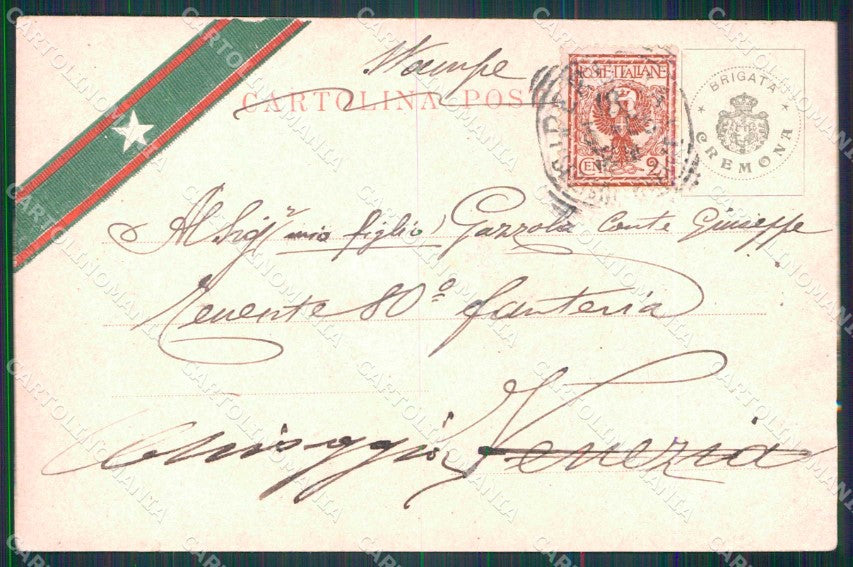 Stampe
CARTOLINA POS
POSTE ITALIANE
CENT 2
★ BRIGATA ★
CREMONA
Al Sigr mio figlio Gazzola Conte Giuseppe
Tenente 80º fanteria
Chioggia Venezia
CARTOLINOMANIA